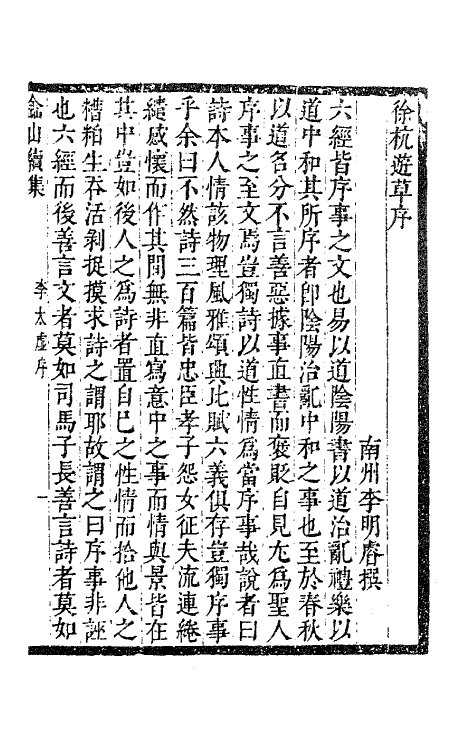 徐杭遊草序
南州李明睿撰
六經皆序事之文也易以道陰陽書以道治亂禮樂以
道中和其所序者卽陰陽治亂中和之事也至於春秋
以道名分不言善惡據事直書而褒貶自見尤爲聖人
序事之至文焉豈獨詩以道性情爲當序事哉說者曰
詩本人情該物理風雅頌興比賦六義俱存豈獨序事
乎余曰不然詩三百篇皆忠臣孝子怨女征夫流連綣
繾感懷而作其間無非直寫意中之事而情與景皆在
其中豈如後人之爲詩者置自巳之性情而拾他人之
糟粕生吞活剝捉摸求詩之謂耶故謂之曰序事非誣
也六經而後善言文者莫如司馬子長善言詩者莫如
山續集
李太虛序
一